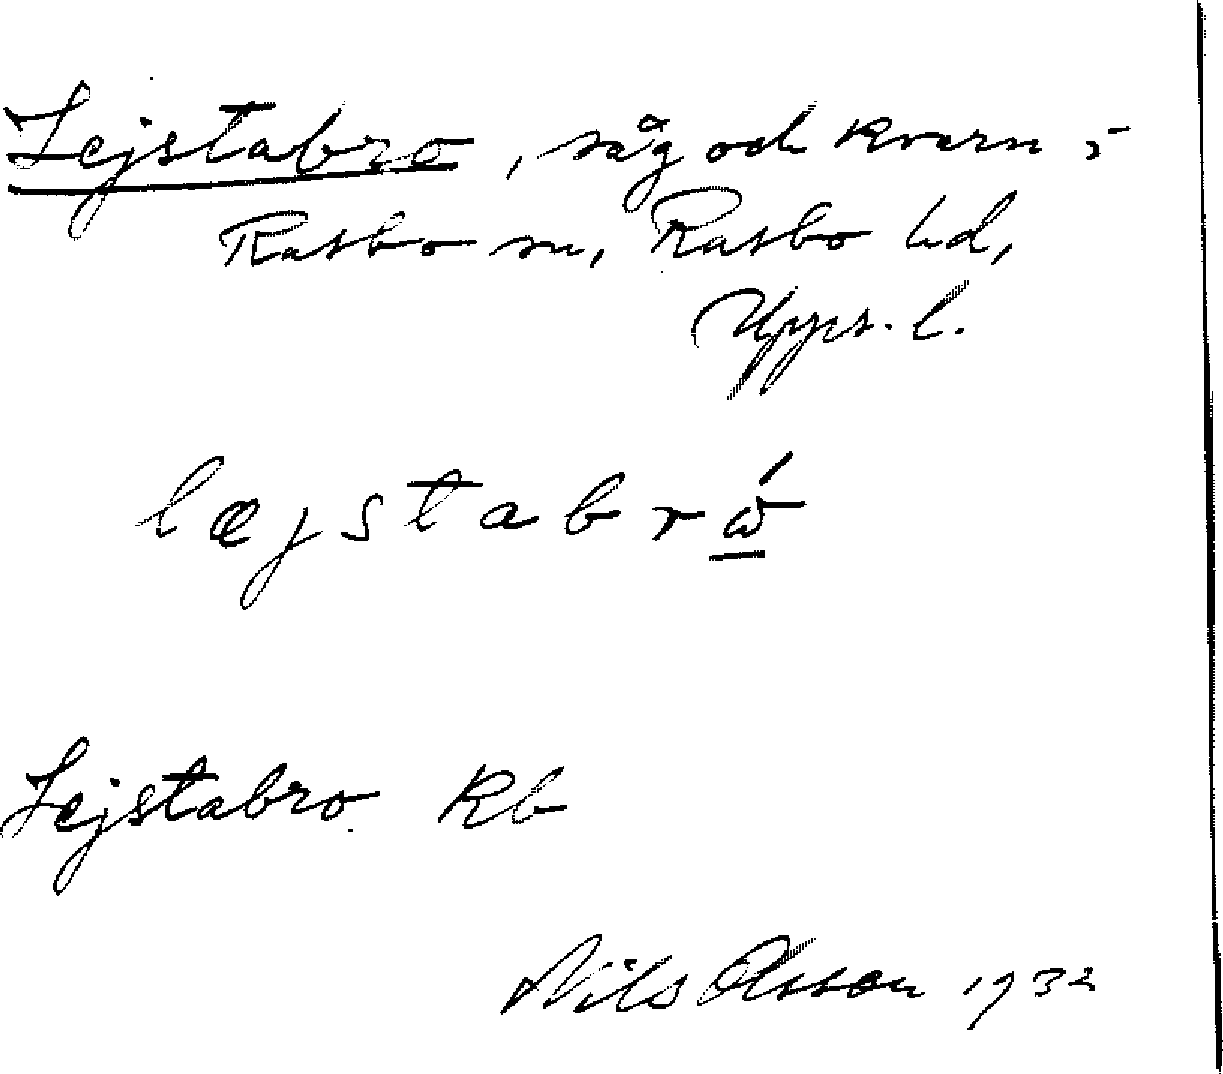 Lejstabro, såg och kvarn i
Rasbo sn, Rasbo hd,
Upps. l.
læjstabrώ̲
Lejstabro Rb
Nils Olsson 1932